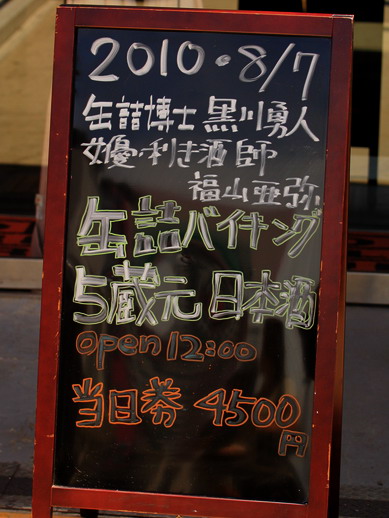 2010・8/7
缶詰博士 黒川勇人
女優・利き酒師
福山亜弥
缶詰バイキング
5蔵元 日本酒
open 12:00
当日券 4500
円